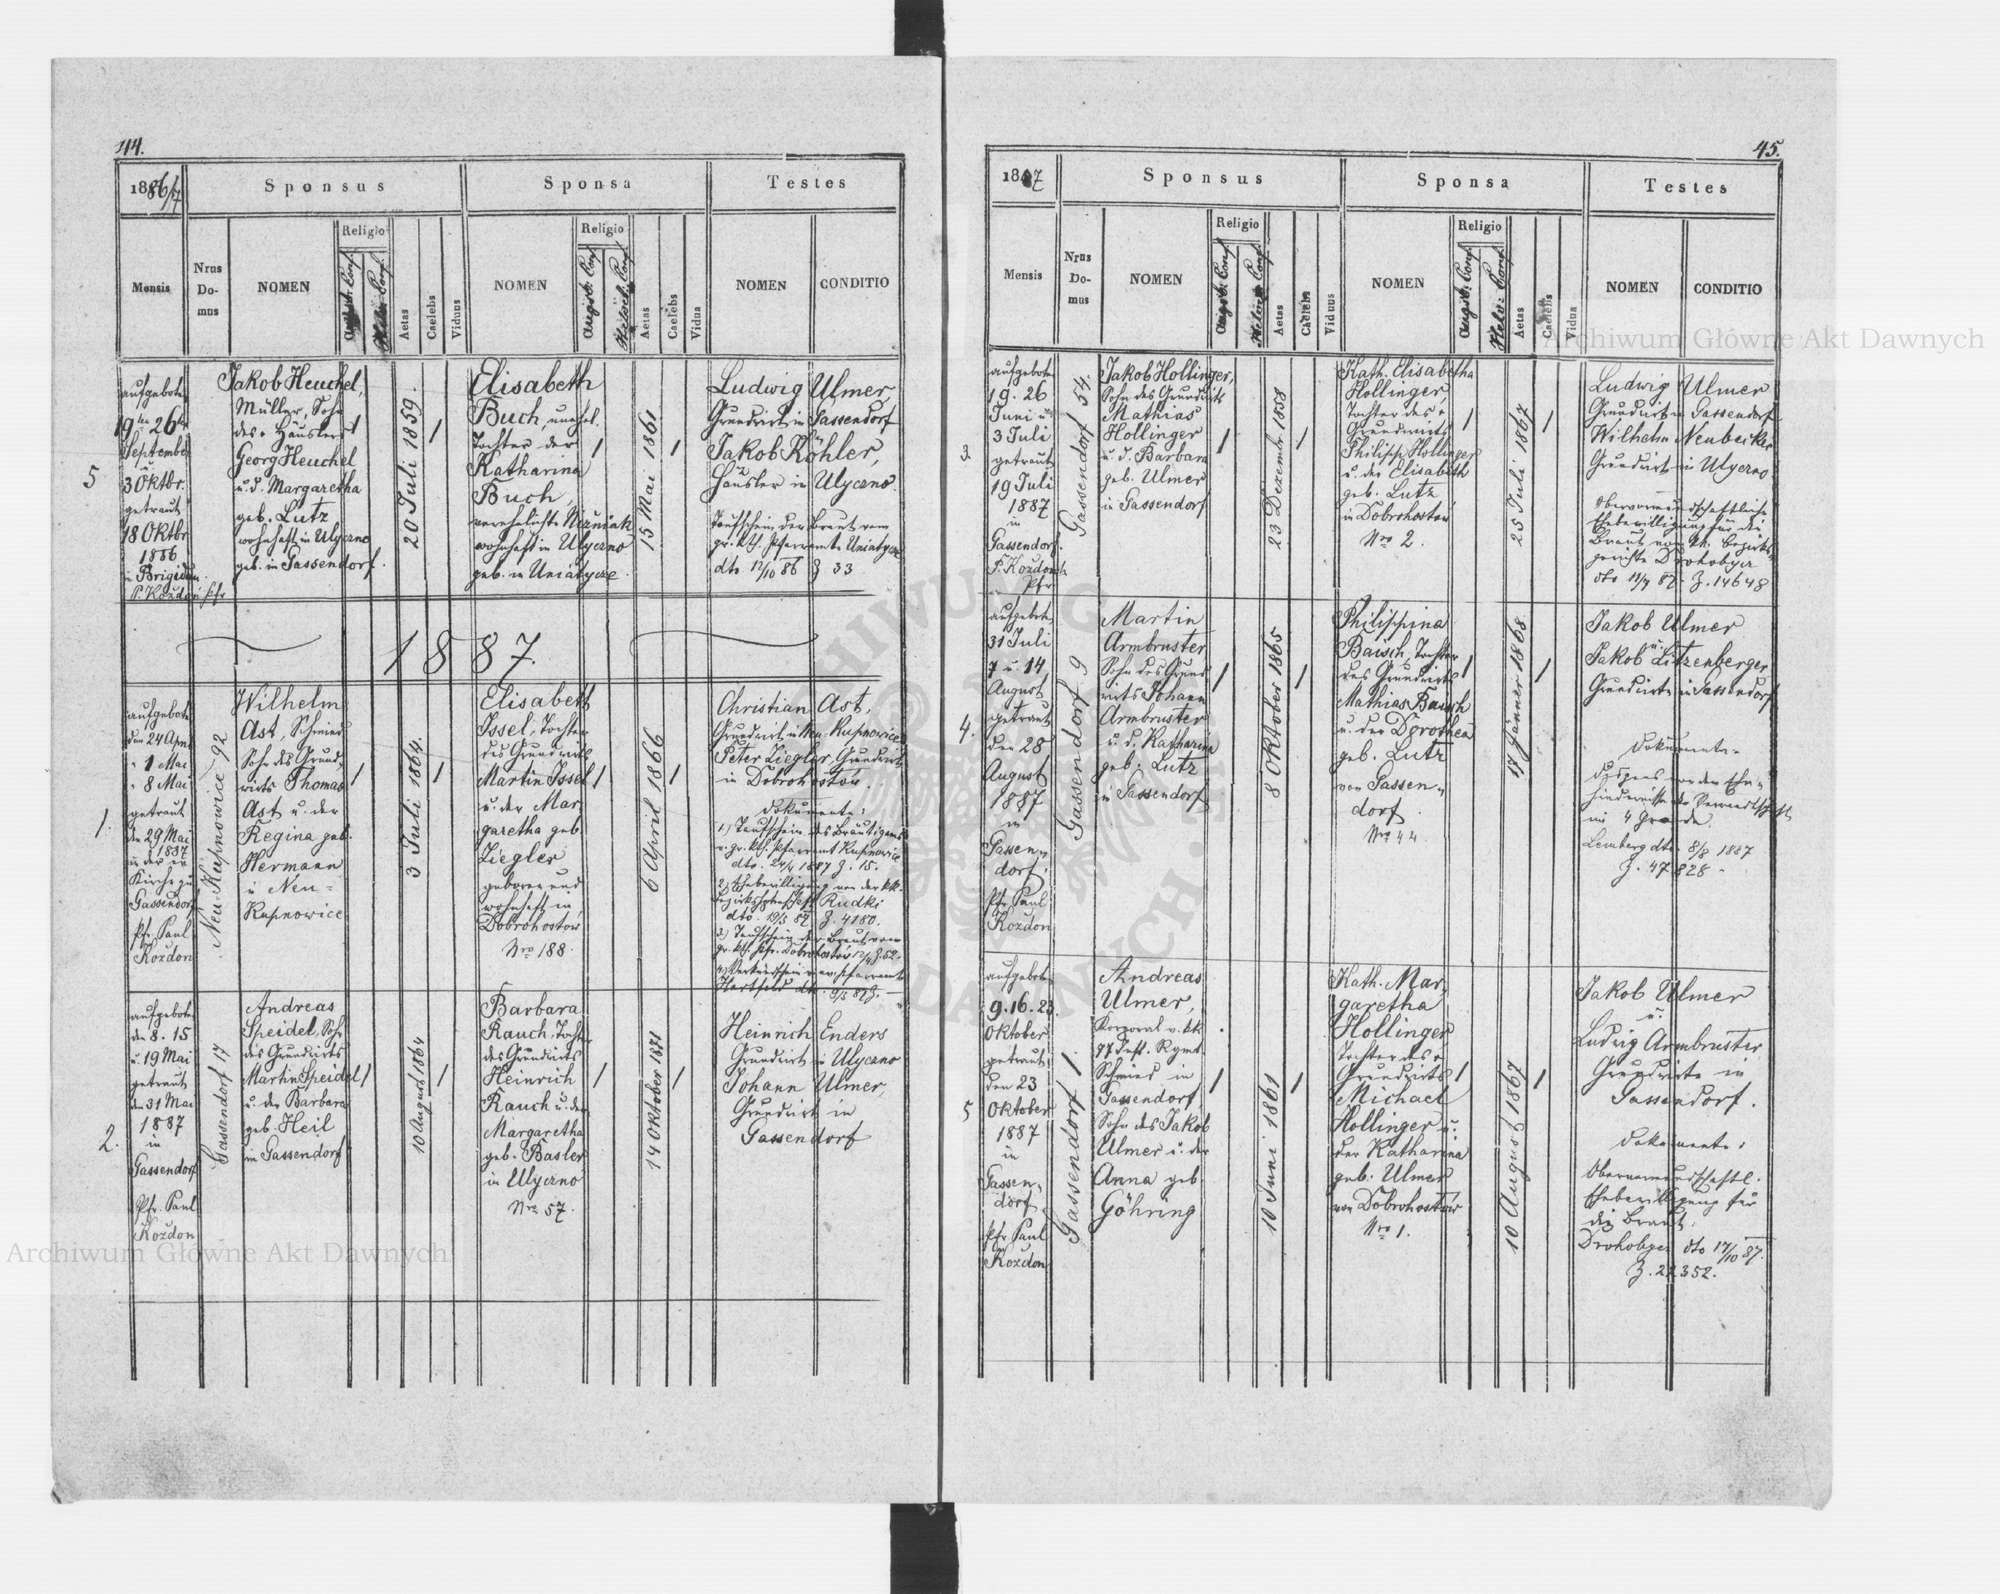 44.
1886/7
Sponsus
Sponsa
Testes
Mensis
Nrus Domus
NOMEN
Religio
Helv. Conf.
Aetas
Caelebs
Viduus
NOMEN
Religio
Augsb. Conf.
Helv. Conf.
Aetas
Caelebs
Vidua
NOMEN
CONDITIO
5
aufgeboten
19ten 26ten
September
u.
3 Oktbr.
getraut
18 Oktbr
1886
in Brigidau
P. Kozdon Pfr
Jakob Heuchel,
Müller, Sohn
des Häuslers
Georg Heuchel
u. d. Margaretha
geb. Lutz
wohnhaft in Ulyczno
geb. in Gassendorf.
20 Juli 1859.
Elisabeth
Buch, unehel.
Tochter der
Katharina
Buch,
verehelichte Nizniak
wohnhaft in Ulyczno
geb. in Uniatycze
15 Mai 1861.
Ludwig Ulmer,
Grundwirt in Gassendorf
Jakob Köhler,
Häusler in Ulyczno.
Taufschein der Braut vom
gr. kth. Pfarramte Uniatycze
dto. 12/10 86 Z 33
1887.
1.
aufgeboten
den 24 April
" 1 Mai
" 8 Mai
getraut
den 29 Mai
1887
in der ev.
Kirche zu
Gassendorf
Pfr. Paul
Kozdon
Neu-Kupnowice 92
Wilhelm
Ast, Schmied
Sohn des Grund-
wirts Thomas
Ast u. der
Regina geb.
Hermann
in Neu-
Kupnowice
3 Juli 1864.
Elisabeth
Issel, Tochter
des Grundwirts
Martin Issel
u. der Mar
garetha geb.
Ziegler
geboren und
wohnhaft in
Dobrohostów
Nro 188.
6 April 1866
Christian Ast,
Grundwirt in Neu-Kupnowice
Peter Ziegler, Grundwirt
in Dobrohostów.
Dokumente:
1.) Taufschein des Bräutigams
v. gr. kth. Pfarramt Kupnowice
dto. 24/4 1887 Z. 15.
2.) Ehebewilligung von der kk.
Bezirkshptmschft Rudki
dto. 19/5 87 Z. 4180.
3.) Taufschein der Braut vom
gr. kth. Pfr. Dobrohostów
4.) Verkündschein v. ev. Pfarramte
Hartfeld dto. 9/5 87 Z. —
2.
aufgeboten
den 8. 15
u. 19 Mai
getraut
den 31 Mai
1887
in
Gassendorf
Pfr. Paul
Kozdon
Gassendorf 17
Andreas
Speidel, Sohn
des Grundwirts
Martin Speidel
u. der Barbara
geb. Heil
in Gassendorf
10 August 1864
Barbara
Rauch, Tochter
des Grundwirts
Heinrich
Rauch u. der
Margaretha
geb. Basler
in Ulyczno
Nro 57.
14 Oktober 1871
Heinrich Enders
Grundwirt in Ulyczno
Johann Ulmer,
Grundwirt in
Gassendorf
45.
1887
Sponsus
Sponsa
Testes
Mensis
Nrus Domus
NOMEN
Religio
Augsb. Conf.
Helv. Conf.
Aetas
Caelebs
Viduus
NOMEN
Religio
Augsb. Conf.
Helv. Conf.
Aetas
Caelebs
Vidua
NOMEN
CONDITIO
3.
aufgeboten
19. 26
Juni u.
3 Juli
getraut
19 Juli
1887
in
Gassendorf.
P. Kozdon
Pfr.
Gassendorf 54.
Jakob Hollinger,
Sohn des Grundwirts
Mathias
Hollinger
u. d. Barbara
geb. Ulmer
in Gassendorf
23 Dezember 1858
Kath. Elisabetha
Hollinger,
Tochter des
Grundwirts
Philipp Hollinger
u. der Elisabeth
geb. Lutz
in Dobrohostów
Nro 2.
25 Juli 1867
Ludwig Ulmer
Grundwirt in Gassendorf
Wilhelm Neubecker
Grundwirt in Ulyczno
Obervormundschaftliche
Ehebewilligung für die
Braut vom kk. Bezirks-
gerichte Drohobycz
dto 11/7 87. Z. 14648
4.
aufgeboten
31 Juli
7 u. 14
August
getraut
den 28
August
1887
in
Gassen-
dorf.
Pfr. Paul
Kozdon
Gassendorf 9
Martin
Armbruster
Sohn des Grund
wirts Johann
Armbruster
u. d. Katharina
geb. Lutz
in Gassendorf
8 Oktober 1865
Philippina
Baisch, Tochter
des Grundwirts
Mathias Baisch
u. der Dorothea
geb. Lutz
von Gassen-
dorf.
Nro 44
17 Jänner 1868
Jakob Ulmer
u.
Jakob Litzenberger
Grundwirte in Gassendorf
Dokumente.
Dispens von dem Ehe-
hindernisse der Verwandtschaft
im 4 Grade.
Lemberg dto. 8/8 1887
Z. 47828.
5
aufgeboten
9. 16. 23.
Oktober
getraut
den 23
Oktober
1887
in
Gassen-
dorf
Pfr. Paul
Kozdon
Gassendorf 1.
Andreas
Ulmer,
Korporal v. kk.
77 Inft. Rgmt.
Schmied in
Gassendorf,
Sohn des Jakob
Ulmer u. der
Anna geb.
Göhring
10 Juni 1861
Kath. Mar-
garetha
Hollinger
Tochter des
Grundwirts
Michael
Hollinger u.
der Katharina
geb. Ulmer
von Dobrohostów
Nro 1.
10 August 1867
Jakob Ulmer
u.
Ludwig Armbruster
Grundwirte in
Gassendorf.
Dokumente:
Obervormundschaftl.
Ehebewilligung für
die Braut.
Drohobycz dto 17/10 87.
Z. 22352.
Archiwum Główne Akt Dawnych
Archiwum Główne Akt Dawnych